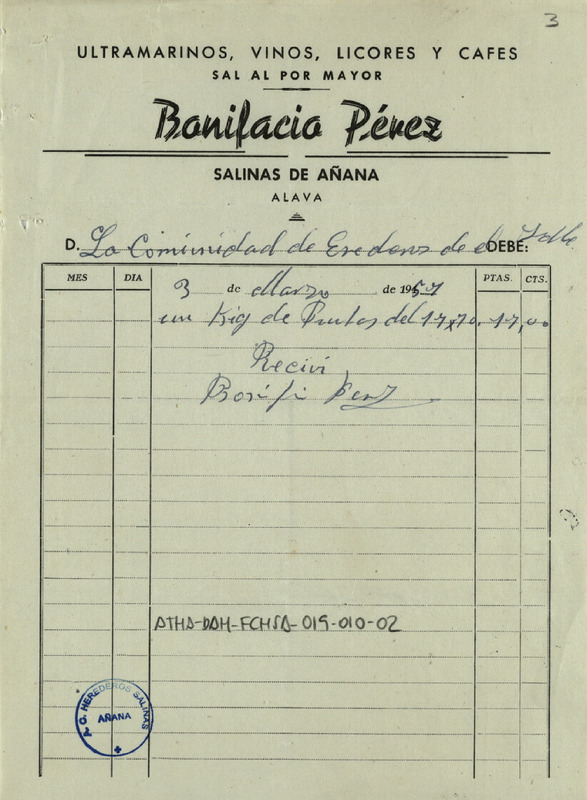 3
ULTRAMARINOS, VINOS, LICORES Y CAFES
SAL AL POR MAYOR
Bonifacio Pérez
SALINAS DE AÑANA
ALAVA
D. La Comunidad de Erederos de el Valle DEBE:
MES DIA 3 de Marzo de 1957 PTAS. CTS.
un Kig de Puntas del 17x70. 17,00
Recivi
Bonifi Perez
ATHA-DAH-FCHSA-019-010-02
A. C. HEREDEROS SALINAS
AÑANA